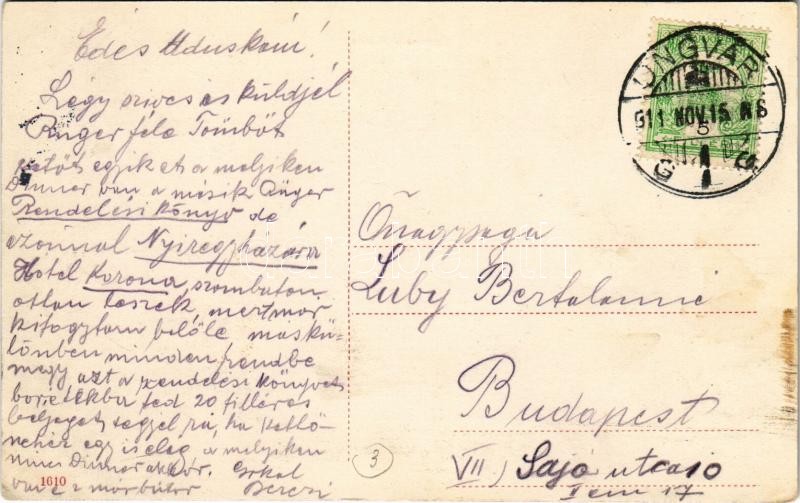 Édes Aduskám!
Légy szives és küldjél
Unger féle Tömböt
kettőt egyiket a melyiken
Dinner van a másik Unger
Rendelési könyv de
azonnal Nyiregyházára
Hotel Korona, szombaton
ottan leszek, mert már
kifogytam belőle máskü-
lönben minden rendbe
megy azt a rendelési könyvet
boritékba tedd 20 filléres
bélyeget tegyél rá, ha kettő
nehéz egy is elég, a melyiken
nincs Dinner akkor.
1610
3
UNGVÁR
911 NOV. 15
Őnagysága
Luby Bertalanné
Budapest
VII) Sajó utca 10
I em 17